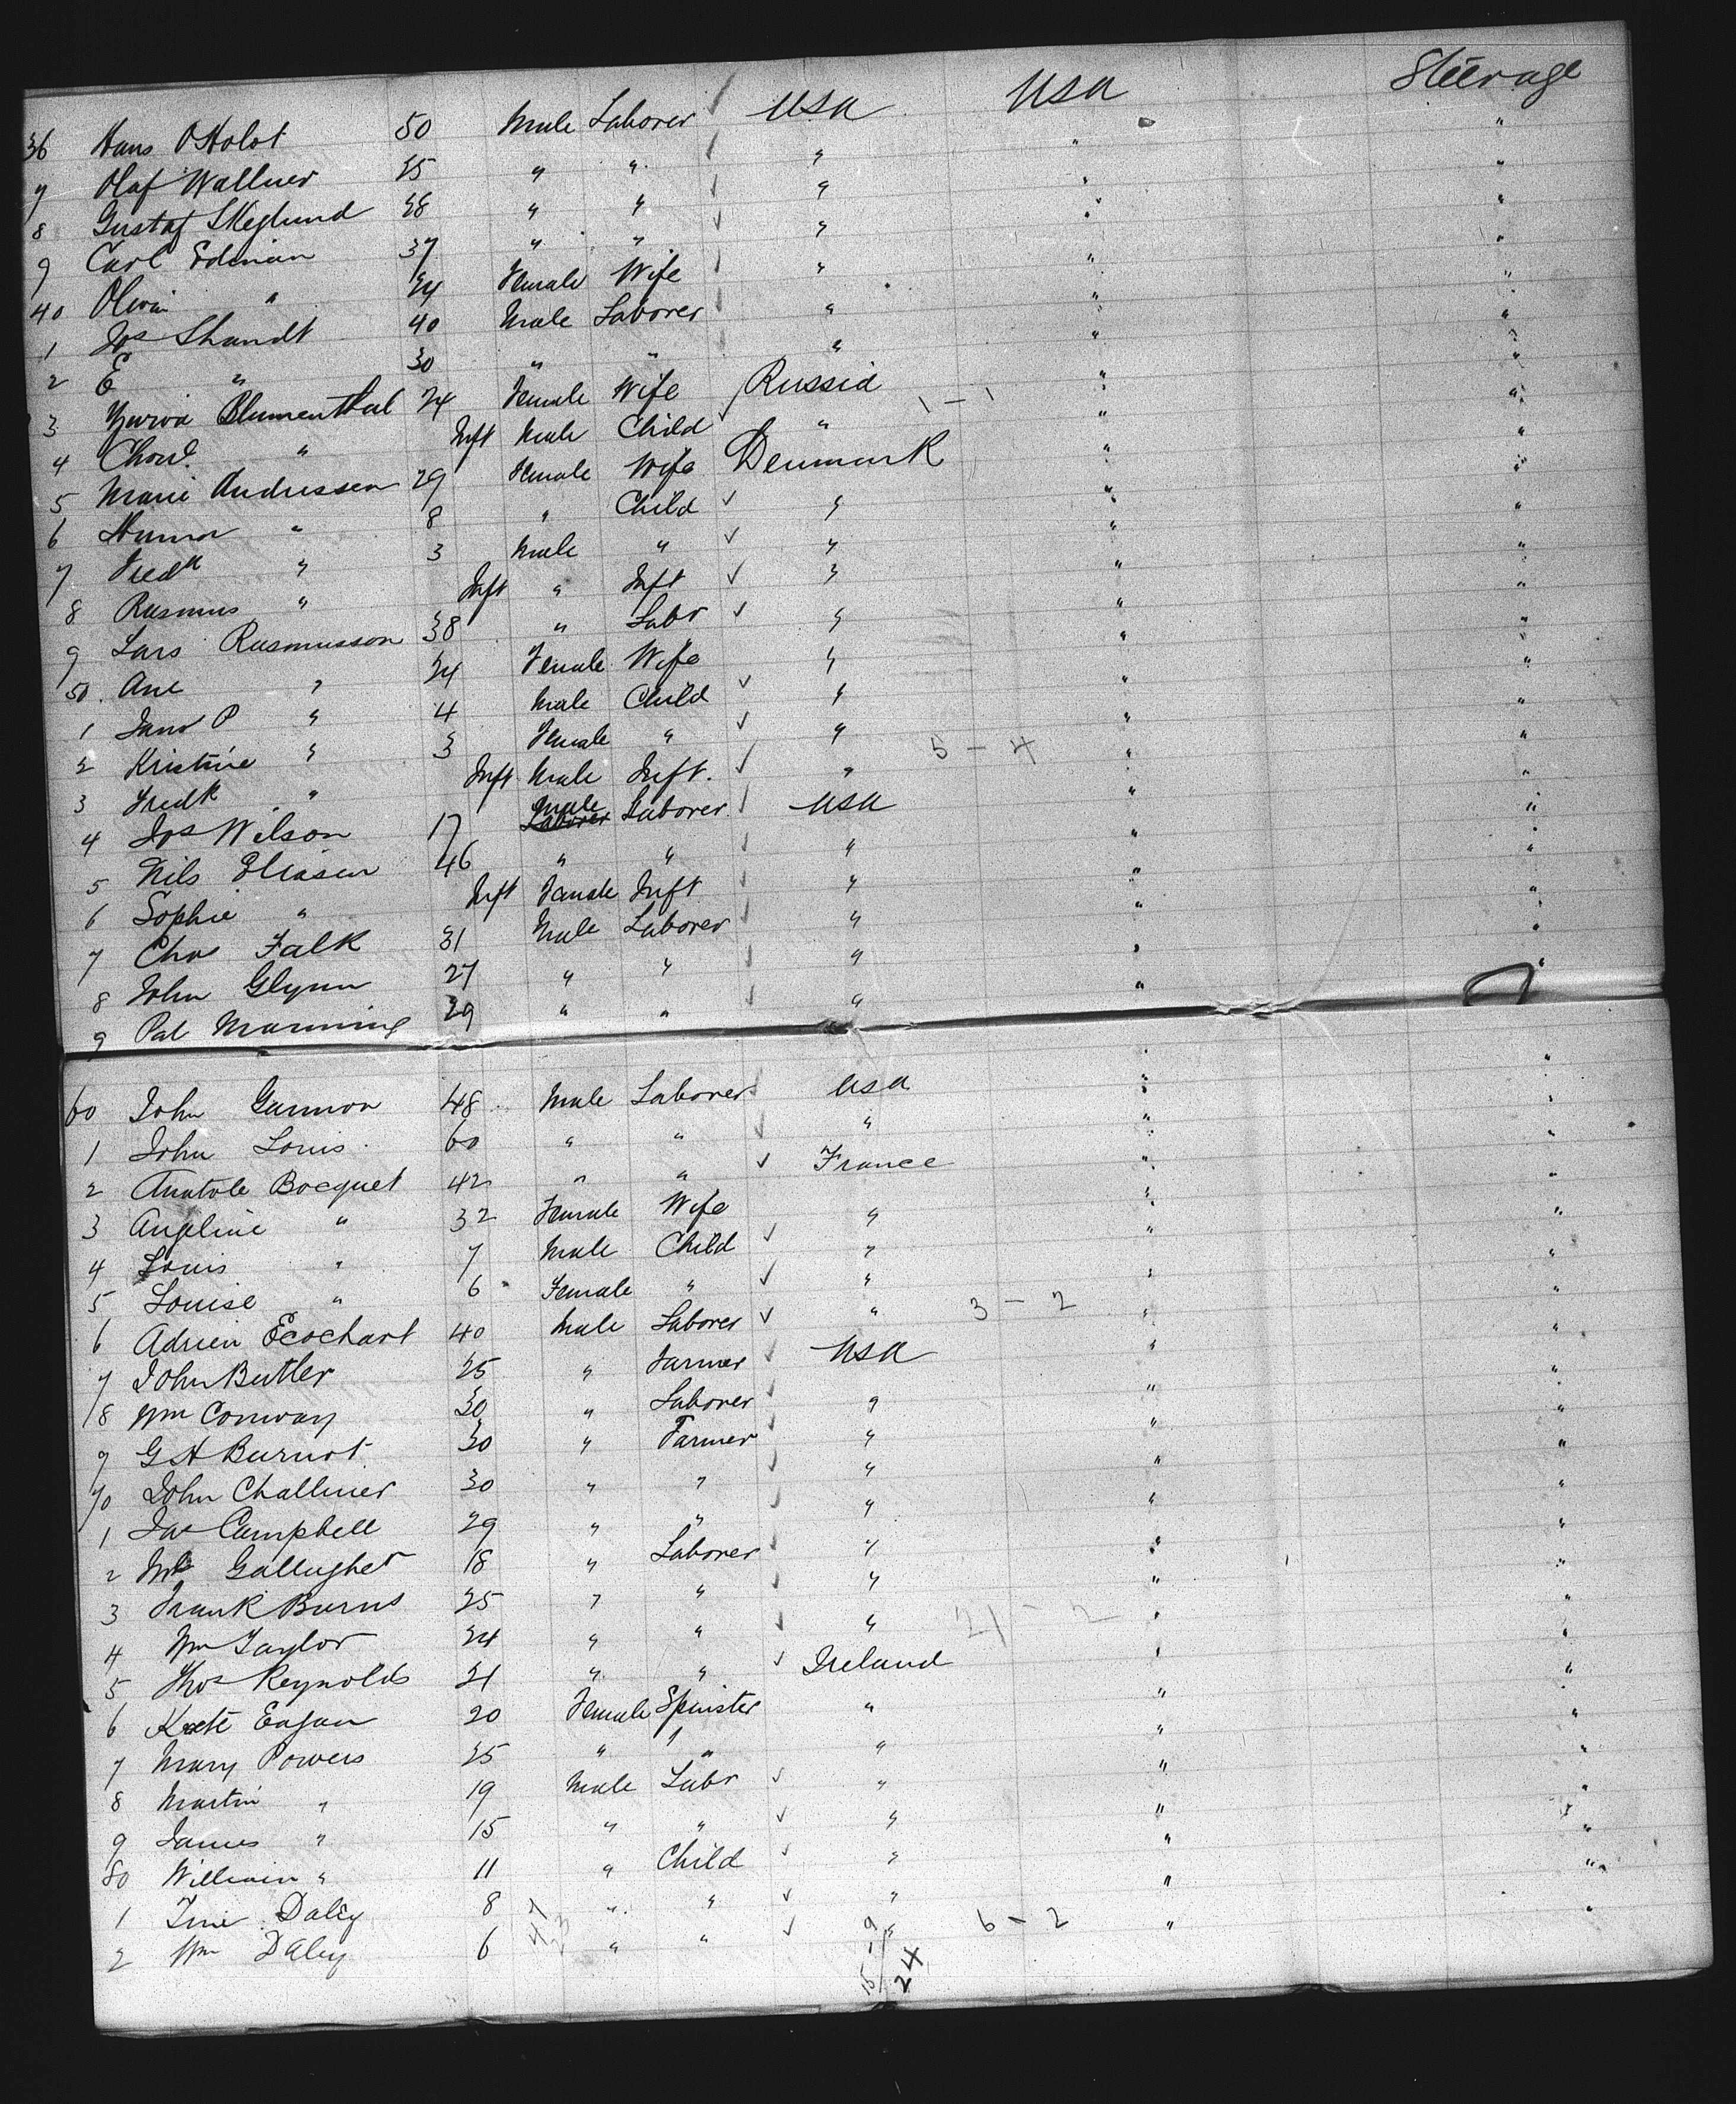 Steerage
36 Hans O Holst 50 Male Laborer USA USA "
7 Olaf Wallner 25 " " " " "
8 Gustaf Skeglund 28 " " " " "
9 Carl Edman 37 " " " " "
40 Olivia " 24 Female Wife " " "
1 Jos Shandt 40 Male Laborer " " "
2 E " 30 " " " " "
3 Blumenthal 24 Female Wife Russia " "
4 " Inft Male Child " 1 - 1 " "
5 Marie Andressen 29 Female Wife Denmark " "
6 " 8 " Child " " "
7 Fredk " 3 Male " " " "
8 Rasmus " Inft " Inft " " "
9 Lars Rasmusson 38 " Labr " " "
50 Ane " 24 Female Wife " " "
1 Jans P " 4 Male Child " " "
2 Kristine " 3 Female " " " "
3 Fredk " Inft Male Inft. " 5 - 4 " "
4 Jos Wilson 17 Male Laborer USA " "
5 Nils Eliasen 46 " " " " "
6 Sophie " Inft Female Inft " " "
7 Chas Falk 31 Male Laborer " " "
8 John Glynn 27 " " " " "
9 Pat Manning 29 " " " " "
60 John Gannon 48 Male Laborer USA " "
1 John Louis 60 " " " " "
2 Anatole Bocquet 42 " " France " "
3 Angeline " 32 Female Wife " " "
4 Louis " 7 Male Child " " "
5 Louise " 6 Female " " " "
6 Adrien Ecochart 40 Male Laborer " 3 - 2 " "
7 John Butler 25 " Farmer USA " "
8 Wm Conway 30 " Laborer " " "
9 G H Burnot 30 " Farmer " " "
70 John Challiner 30 " " " " "
1 Jas Campbell 29 " " " " "
2 Gallagher 18 " Laborer " " "
3 Frank Burns 25 " " " " "
4 Wm Taylor 24 " " " 21 - 2 " "
5 Thos Reynolds 21 " " Ireland " "
6 Kate Eagan 20 Female Spinster " " "
7 Mary Powers 25 " " " " "
8 Martin " 19 Male Labr " " "
9 James " 15 " " " " "
80 William " 11 " Child " " "
1 Daley 8 " " " " "
2 Wm Daley 6 " " " 6 - 2 " "
15 / 9
24